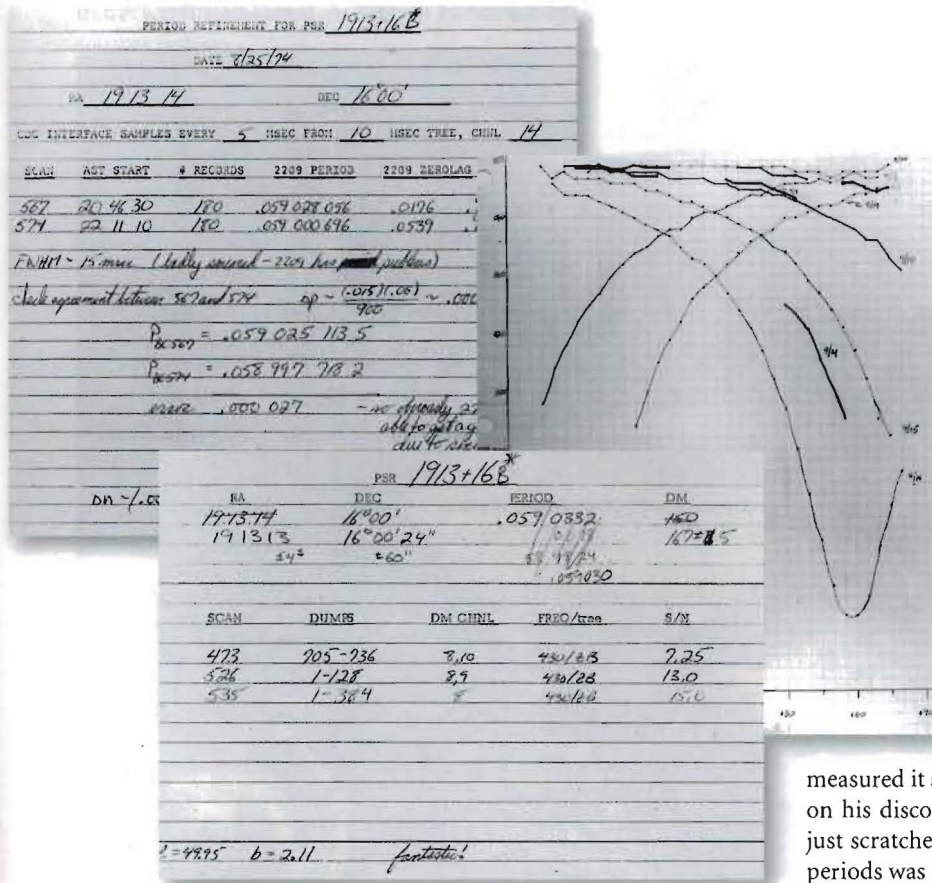 PERIOD REFINEMENT FOR PSR 1913+16B
DATE 8/25/74
RA 19 13 14 DEC 16°00'
CDC INTERFACE SAMPLES EVERY 5 MSEC FROM 10 MSEC TREE, CHNL 14
SCAN AST START # RECORDS 2209 PERIOD 2209 ZEROLAG
567 20 46 30 180 .059 028 056 .0176
574 22 11 10 180 .059 000 696 .0539
FWHM ~ 15 msec (badly smeared - 2209 has problems)
check agreement between 567 and 574 Δp ~ (.015)(.06) ~ .000
900
P 567 = .059 025 113 5
P 574 = .058 997 718 2
error .000 027 - so obviously 22
able to get ag
due to
9/14
9/15
PSR 1913+16B*
RA DEC PERIOD DM
19 13 14 16°00' .059 0332 150
19 13 13 16°00'24" 167±5
±4ˢ ±60"
.059030
SCAN DUMPS DM CHNL FREQ/tree S/N
473 705-736 8,10 430/2B 7.25
526 1-128 8,9 430/2B 13.0
535 1-384 8 430/2B 15.0
=49.95 b = 2.11 fantastic!
measured it
on his disco
just scratche
periods was